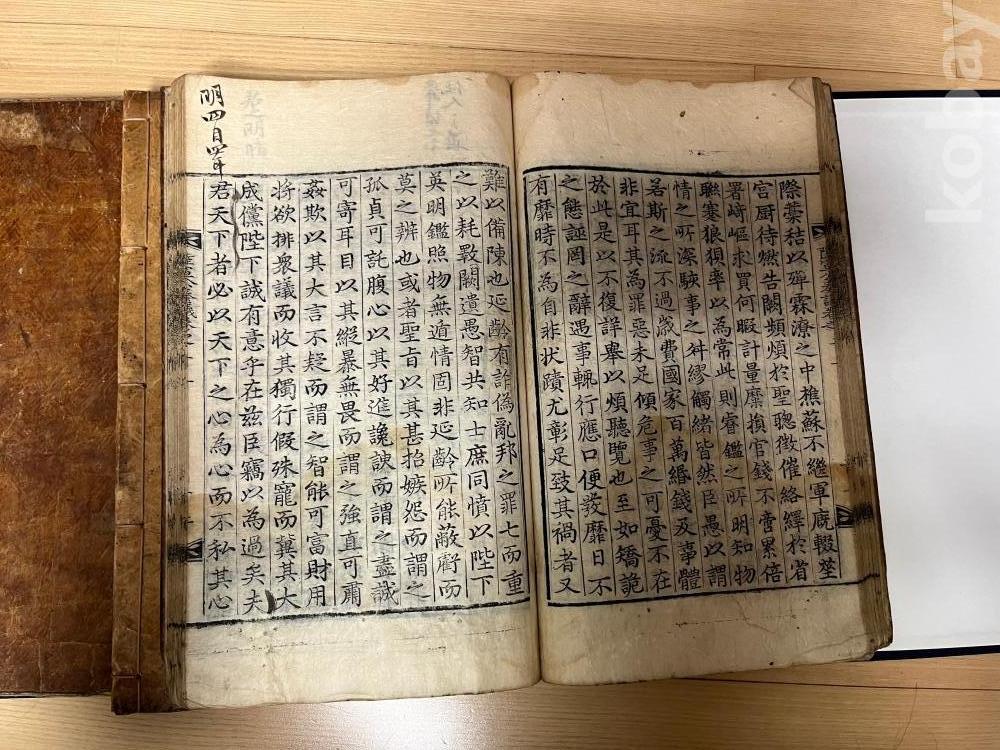 際藁秸以殫霖潦之中樵蘇不繼軍廐輟莝
宮厨待燃告闕頻煩於聖聰徵催絡繹於省
署崎嶇求買何暇計量靡損官錢不啻累倍
聮塞狼狽率以為常此則睿鑑之所明知物
情之所深駭事之舛繆觸緒皆然臣愚以謂
若斯之流不過歲費國家百萬緡錢及事體
非宜耳其為罪惡未足傾危事之可憂不在
於此是以不復詳舉以煩聽覽也至如矯詭
之態誣罔之辭遇事輒行應口便發靡日不
有靡時不為自非狀蹟尤彰足致其禍者又
難以備陳也延齡有詐偽亂邦之罪七而重
之以耗斁闕遺愚智共知士庶同憤以陛下
英明鑑照物無遁情固非延齡所能蔽虧而
莫之辨也或者聖旨以其甚招嫉怨而謂之
孤貞可託腹心以其好進讒諛而謂之盡誠
可寄耳目以其縱暴無畏而謂之強直可肅
姦欺以其大言不疑而謂之智能可富財用
將欲排衆議而收其獨行假殊寵而冀其大
成儻陛下誠有意乎在玆臣竊以為過矣夫
君天下者必以天下之心為心而不私其心
明四目
kobay